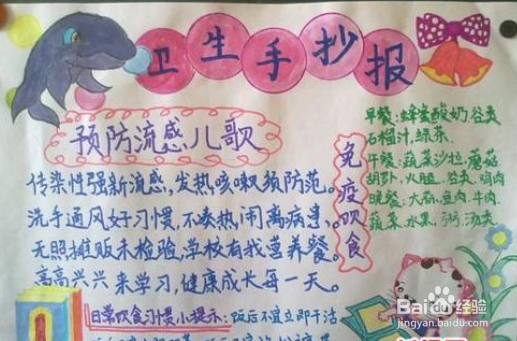 卫生手抄报
预防流感儿歌
传染性强新流感,发热咳嗽须防范。
洗手通风好习惯,不凑热闹离病毒。
无照摊贩未检验,学校有我营养餐。
高高兴兴来学习,健康成长每一天。
日常饮食习惯小提示:饭后不宜立即干活
免疫饮食
早餐:蜂蜜酸奶.谷类
石榴汁,绿茶.
午餐:蔬菜沙拉.蘑菇
胡萝卜.火腿.谷类.鸡肉
晚餐:大蒜.鱼肉.牛肉.
蔬菜.水果.粥.汤类.
Baidu经验
jingyan.baidu.com